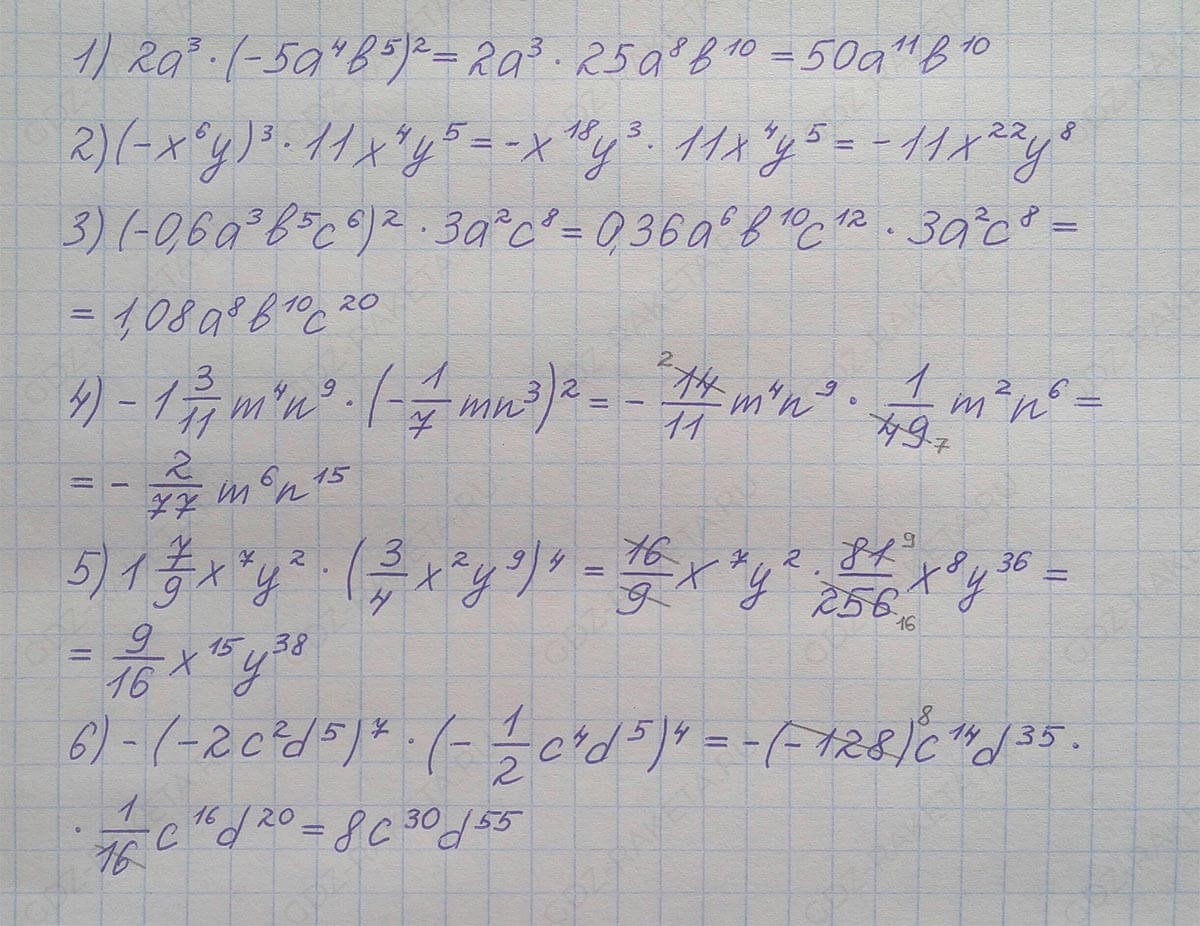 1) 2a³ · (-5a⁴b⁵)² = 2a³ · 25a⁸b¹⁰ = 50a¹¹b¹⁰
2) (-x⁶y)³ · 11x⁴y⁵ = -x¹⁸y³ · 11x⁴y⁵ = -11x²²y⁸
3) (-0,6a³b⁵c⁶)² · 3a²c⁸ = 0,36a⁶b¹⁰c¹² · 3a²c⁸ =
= 1,08a⁸b¹⁰c²⁰
4) - 1 3/11 m⁴n⁹ · (- 1/7 mn³)² = - 14/11 m⁴n⁹ · 1/49 m²n⁶ =
= - 2/77 m⁶n¹⁵
5) 1 7/9 x⁷y² · (3/4 x²y⁹)⁴ = 16/9 x⁷y² · 81/256 x⁸y³⁶ =
= 9/16 x¹⁵y³⁸
6) - (-2c²d⁵)⁷ · (- 1/2 c⁴d⁵)⁴ = -(-128)c¹⁴d³⁵ ·
· 1/16 c¹⁶d²⁰ = 8c³⁰d⁵⁵